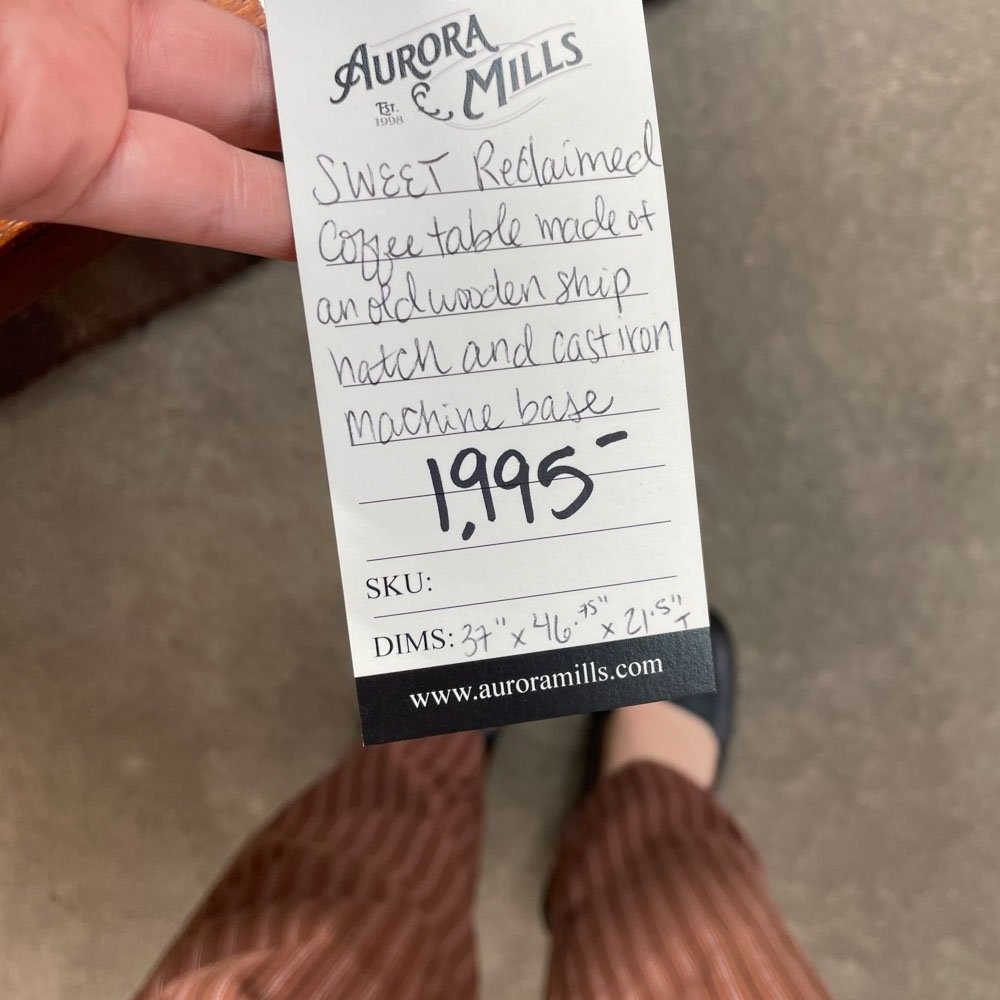 AURORA
& MILLS
EST.
1998
SWEET Reclaimed
Coffee table made of
an old wooden ship
hatch and cast iron
machine base
1,995-
SKU:
DIMS: 37" x 46.75" x 21.5" T
www.auroramills.com